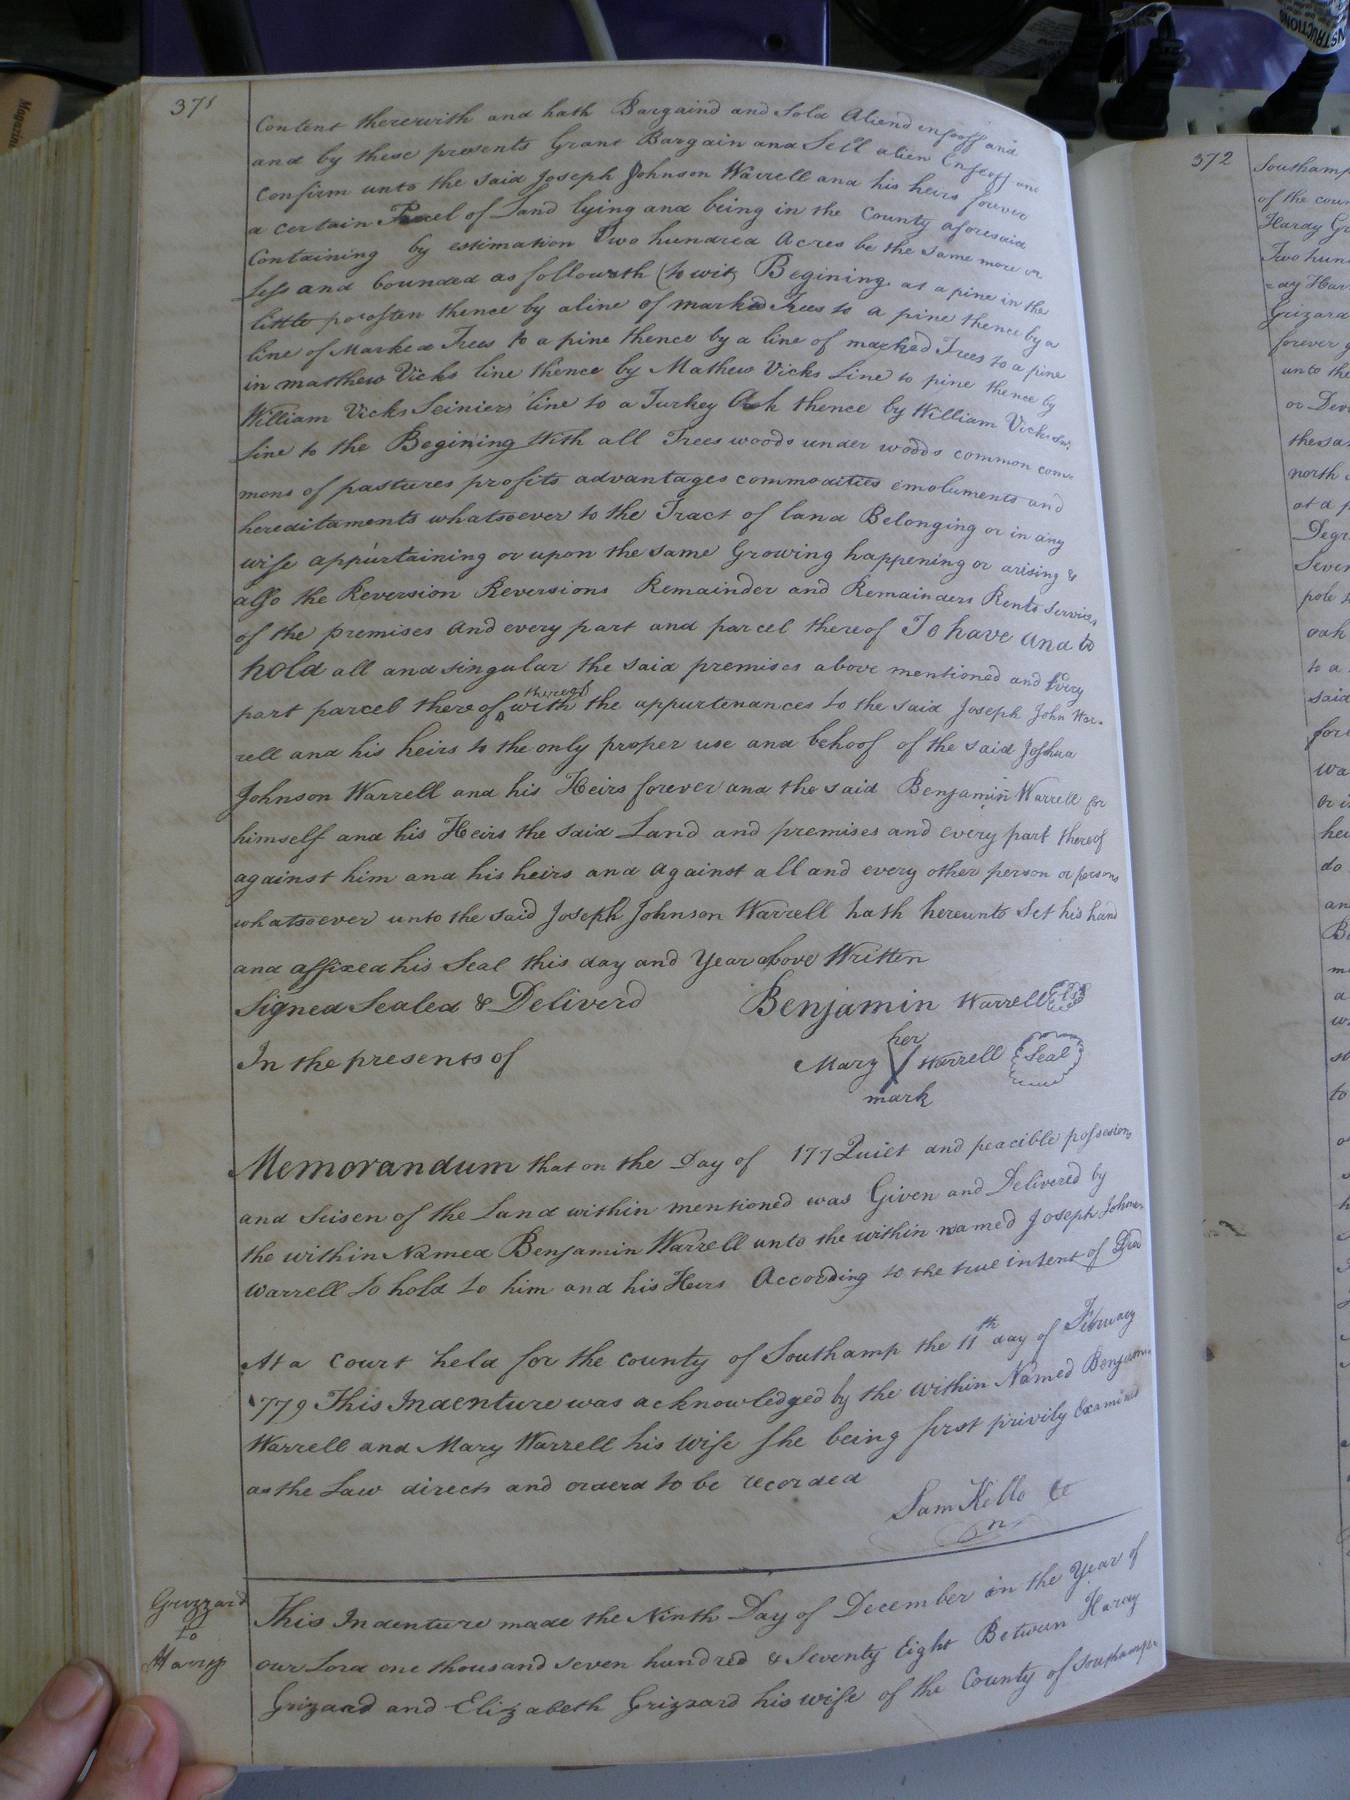 371
Content therewith and hath Bargaind and Sold Aliend enfeoff and
and by these presents Grant Bargain and Sell alien Enfeoff and
Confirm unto the said Joseph Johnson Warrell and his heirs forever
a certain Parcel of Land lying and being in the County aforesaid
Containing by estimation Two hundred Acres be the same more or
Less and bounded as followeth (to wit) Begining at a pine in the
little pocosen thence by a line of marked Trees to a pine thence by a
line of Marked Trees to a pine thence by a line of marked Trees to a pine
in matthew Vicks line thence by Mathew Vicks Line to pine thence by
William Vicks Seiniers line to a Turkey Oak thence by William Vicks Senr.
line to the Begining With all Trees woods under woods common com-
mons of pastures profits advantages commodities emoluments and
hereditaments whatsoever to the Tract of land Belonging or in any
wise appurtaining or upon the same Growing happening or arising &
also the Reversion Reversions Remainder and Remainders Rents Services
of the premises And every part and parcel thereof To have and to
hold all and singular the said premises above mentioned and Every
part parcel thereof thereof with the appurtenances to the said Joseph John War-
rell and his heirs to the only proper use and behoof of the said Joshua
Johnson Warrell and his Heirs forever and the said Benjamin Warrell for
himself and his Heirs the said Land and premises and every part thereof
against him and his heirs and against all and every other person or persons
whatsoever unto the said Joseph Johnson Warrell hath hereunto Set his hand
and affixed his Seal this day and Year above Written
Signed Sealed & Deliverd Benjamin Warrell
In the presents of Mary her mark Warrell Seal
Memorandum that on the Day of 177 Quiet and peacible possesion
and Seisen of the Land within mentioned was Given and Delivered by
the within Named Benjamin Warrell unto the within named Joseph Johnson
Warrell to hold to him and his Heirs According to the true intent of Deed
At a Court held for the County of Southamp the 11th day of February
1779 This Indenture was acknowledged by the within Named Benjamin
Warrell and Mary Warrell his wife She being first privily Examined
as the Law directs and orderd to be recorded
Sam Kello
Grizzard
to
This Indenture made the Ninth Day of December in the Year of
our Lord one thousand seven hundred & Seventy Eight Between Hardy
Grizard and Elizabeth Grizzard his wife of the County of Southampn
372
Southamp
of the coun
Hardy Gr
Two hun
Grizard
forever g
unto the
north
at a p
Degr
Seven
pole
oak
to a
said